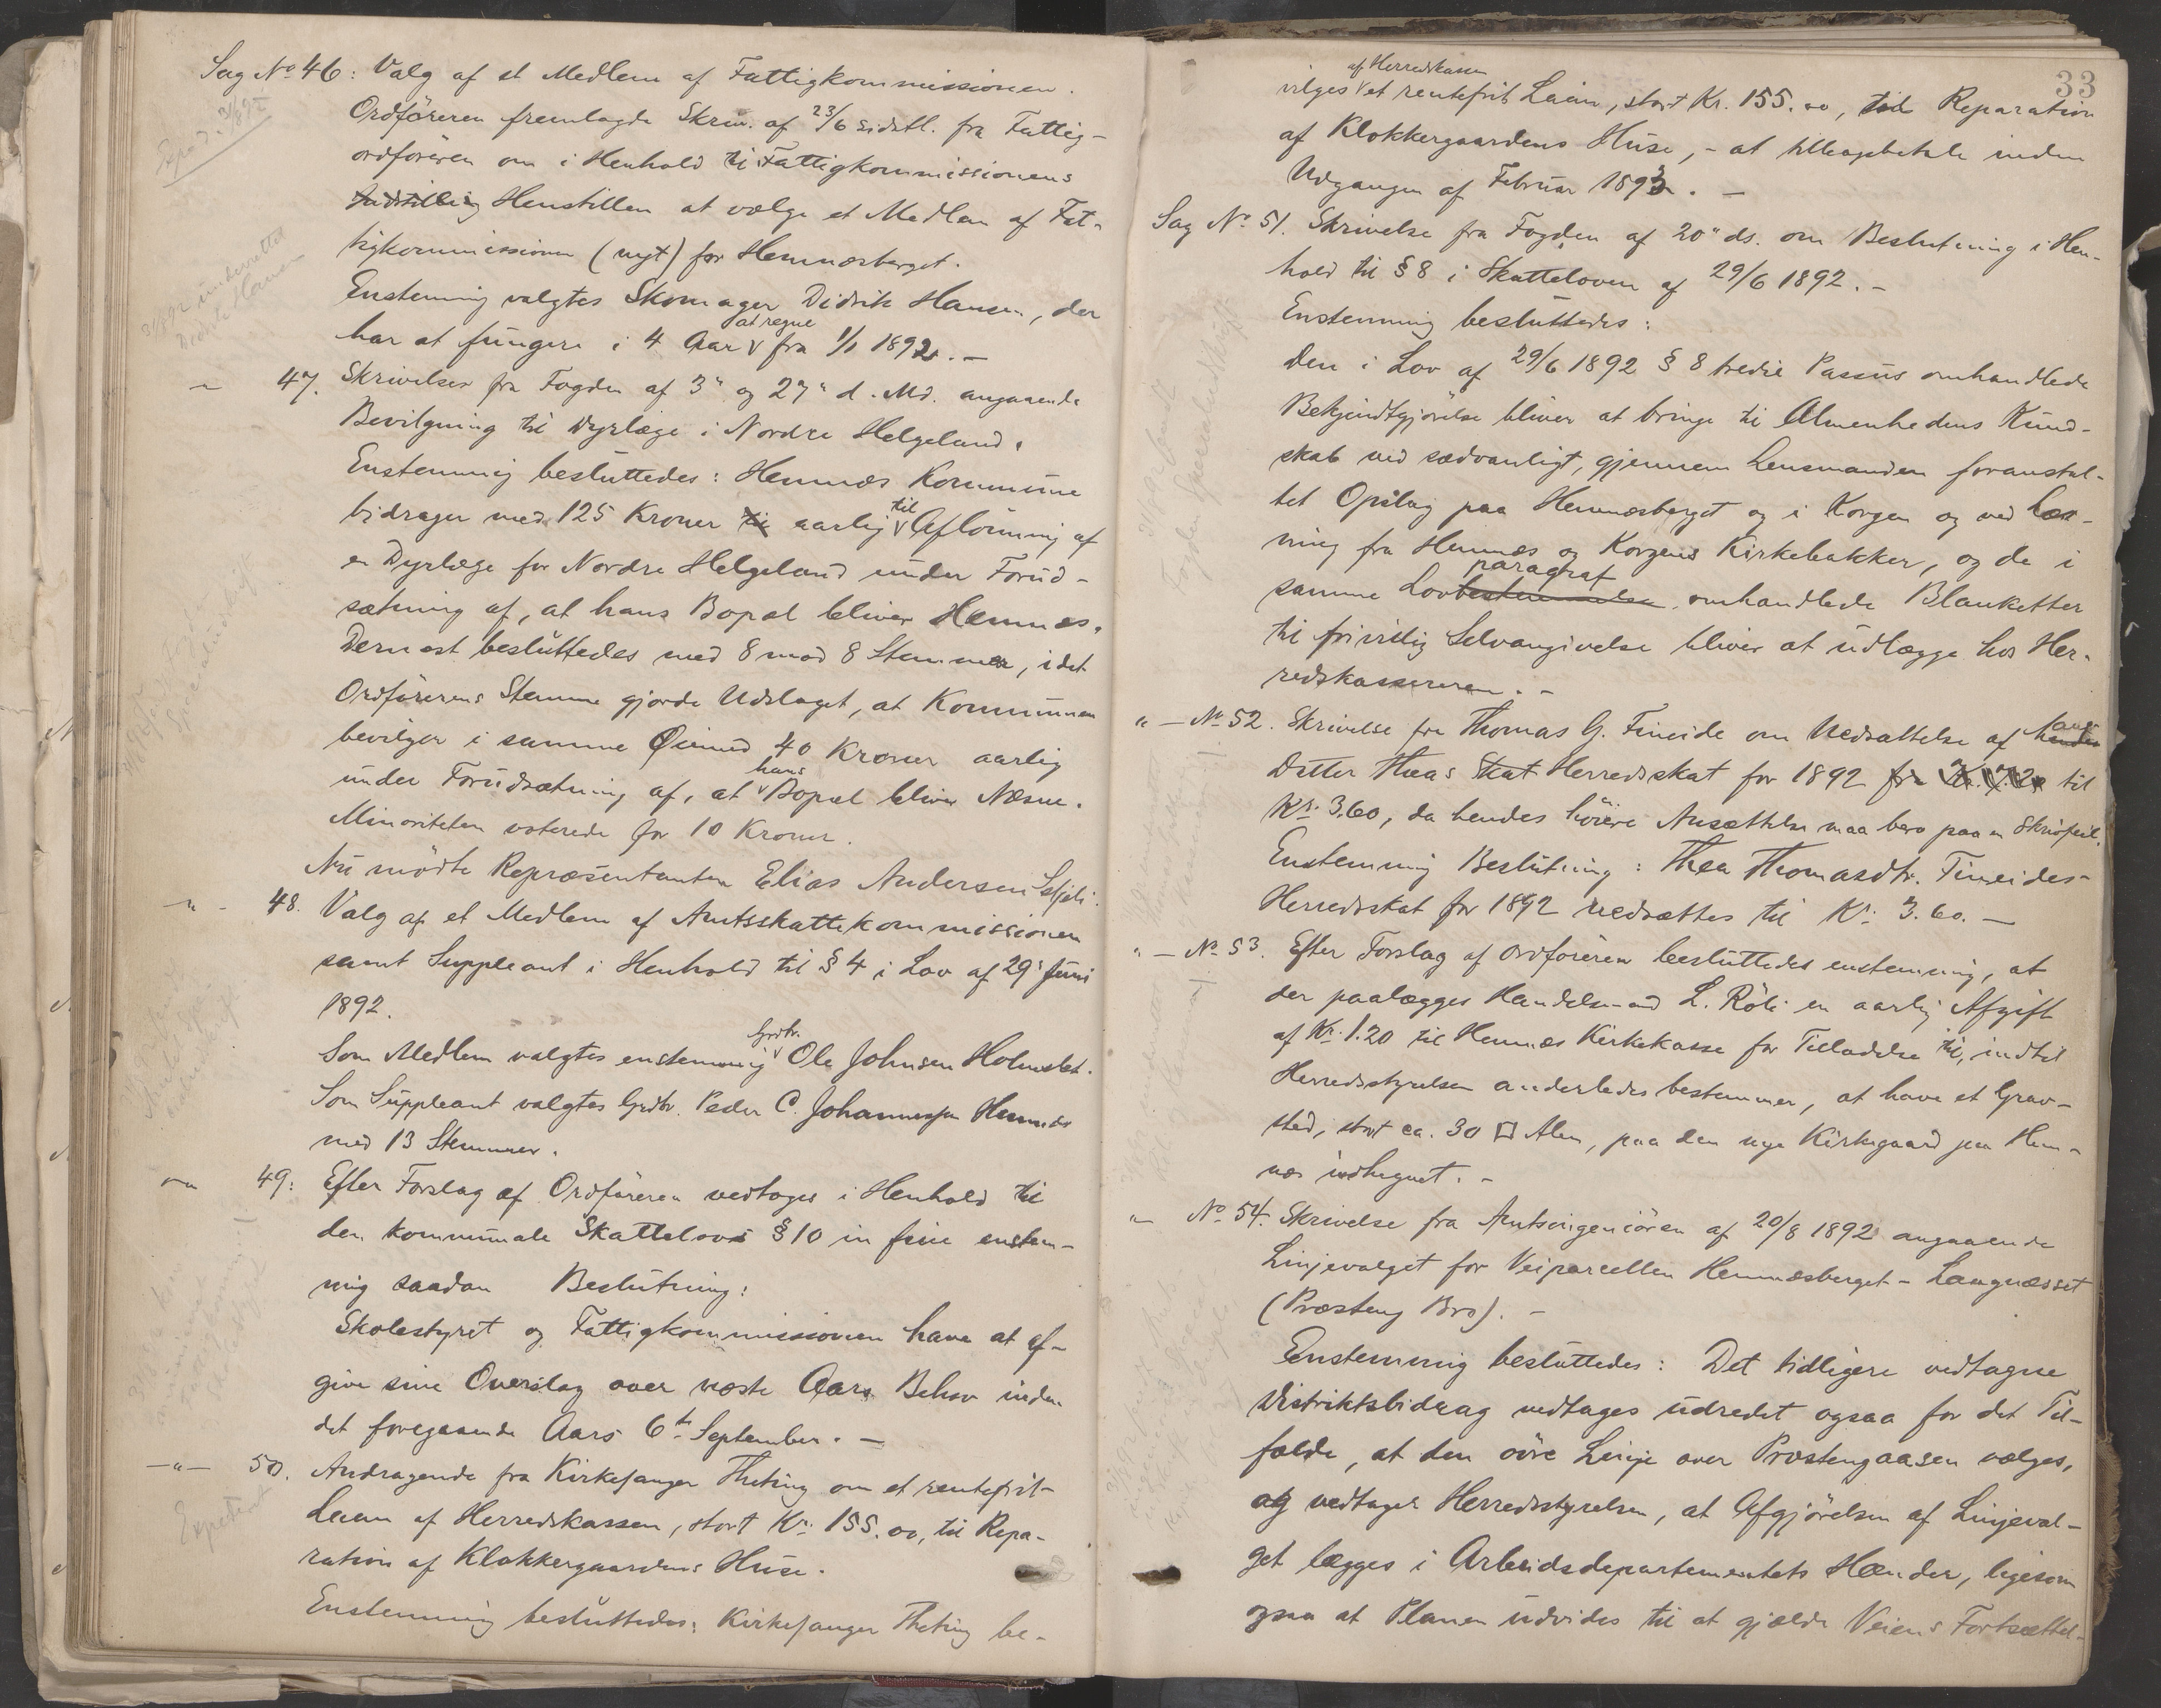 Sag No 46: Valg af et Medlem af Fattigkommissionen.
Ordföreren fremlagde Skriv. af 23/6 sidstl. fra Fattig-
ordföreren om i Henhold til Fattigkommissionens
Indstilling Henstillen at vælge et Medlem af Fat-
tigkommissionen (nyt) for Hemnæsberget.
Enstemmig valgtes Skomager Didrik Hansen, der
har at fungere i 4 Aar at regne fra 1/1 1892. –
" 47. Skrivelser fra Fogden af 3" og 27" d. Md. angaaende
Bevilgning til Dyrlæge i Nordre Helgeland.
Enstemmig besluttedes: Hemnæs Kommune
bidrager med 125 Kroner til aarlig til Aflönning af
en Dyrlæge for Nordre Helgeland under Forud-
sætning af, at hans Bopæl bliver Hemnæs.
Dernæst besluttedes med 8 mod 8 Stemmer, idet
Ordförerens Stemme gjorde Udslaget, at Kommunen
bevilger i samme Öiemed 40 Kroner aarlig
under Forudsætning af, at hans Bopæl bliver Næsne.
Minoriteten voterede for 10 Kroner.
Nu mödte Repræsentanten Elias Andersen
" - 48. Valg af et Medlem af Amtsskattekommissionen
samt Suppleant i Henhold til § 4 i Lov af 29' Juni
1892.
Som Medlem valgtes enstemmig Grdbr. Ole Johnsen Holmslet.
Som Suppleant valgtes Grdbr. Peder C. Johannessen Hemnæs
med 13 Stemmer.
49: Efter Forslag af Ordföreren vedtoges i Henhold til
den kommunale Skattelovs § 10 in fine enstem-
mig saadan Beslutning:
Skolestyret og Fattigkommissionen have at af-
give sine Overslag over næste Aars Behov inden
det foregaaende Aars 6te September. –
—"— 50. Andragende fra Kirkesanger Theting om et rentefrit
Laan af Herredskassen, stort Kr. 155.00, til Repa-
ration af Klokkergaardens Huse.
Enstemmig besluttedes: Kirkesanger Theting be-
33
vilges af Herredskassen et rentefrit Laan, stort Kr. 155.00, til Reparation
af Klokkergaardens Huse, - at tilbagebetale inden
Udgangen af Februar 1893. –
Sag No 51. Skrivelse fra Fogden af 20" ds. om Beslutning i Hen-
hold til § 8 i Skatteloven af 29/6 1892. –
Enstemmig besluttedes:
Den i Lov af 29/6 1892 § 8 tredie Passus omhandlede
Bekjendtgjörelse bliver at bringe til Almenhedens Kund-
skab ved sædvanligt, gjennem Lensmanden foranstal-
tet Opslag paa Hemnæsberget og i Korgen og ved Læs-
ning fra Hemnæs og Korgens Kirkebakker, og de i
samme Lovbestemmelse paragraf omhandlede Blanketter
til frivillig Selvangivelse bliver at udlægge hos Her-
redskassereren. –
" — No 52. Skrivelse fra Thomas G. Fineide om Nedsættelse af hendes hans
Datter Theas Skat Herredsskat for 1892 fra Kr. 7.20 til
Kr. 3.60, da hendes höiere Ansættelse maa bero paa en Skrivfeil.
Enstemmig Beslutning: Thea Thomasdtr. Fineides
Herredsskat for 1892 nedsættes til Kr. 3.60. —
" — No 53. Efter Forslag af Ordföreren besluttedes enstemmig, at
der paalægges Handelsmand L. Röli en aarlig Afgift
af Kr. 1.20 til Hemnæs Kirkekasse for Tilladelse til, indtil
Herredsstyrelsen anderledes bestemmer, at have et Grav-
sted, stort ca. 30 □ Alen, paa den nye Kirkegaard paa Hem-
næs indhegnet. –
" No 54. Skrivelse fra Amtsingeniören af 20/8 1892 angaaende
Linjevalget for Veiparcellen Hemnæsberget - Langnæsset
(Præsteng Bro). –
Enstemmig besluttedes: Det tidligere vedtagne
Distriktsbidrag vedtages udredet ogsaa for det Til-
fælde, at den övre Linje over Præstengaasen vælges,
og vedtager Herredsstyrelsen, at Afgjörelsen af Linjeval-
get lægges i Arbeidsdepartementets Hænder, ligesom
ogsaa at Planen udvides til at gjælde Veiens Fortsættel-